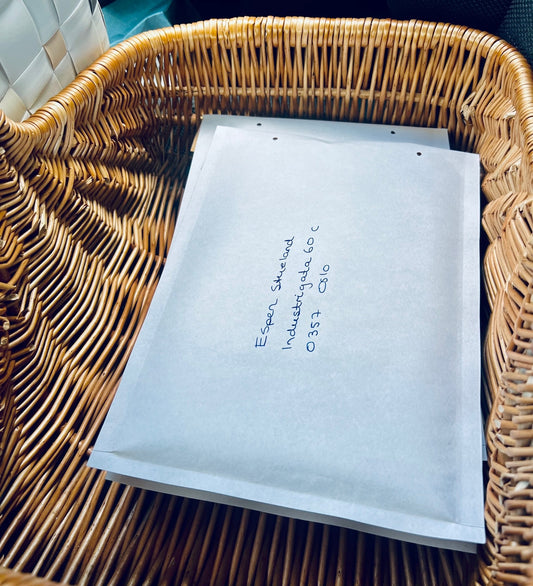 Espen Skieland
Industrigada 60 C
0357 Oslo